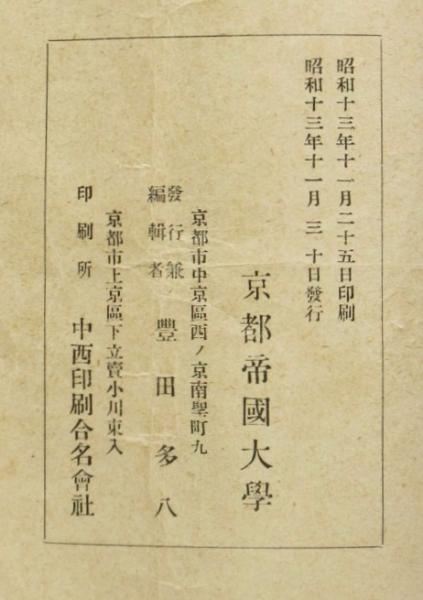 昭和十三年十一月二十五日印刷
昭和十三年十一月三十日發行
京都帝國大學
京都市中京區西ノ京南聖町九
發行兼
編輯者
豐田多八
京都市上京區下立賣小川東入
印刷所 中西印刷合名會社